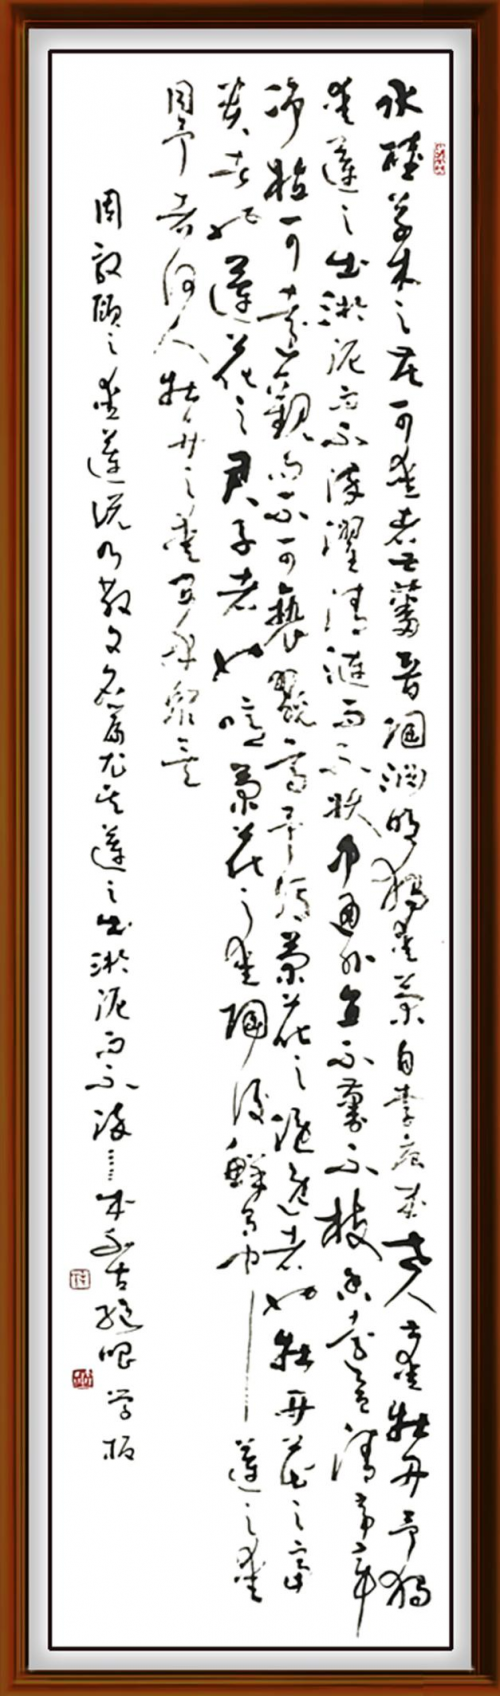 水陸草木之花可愛者甚蕃晉陶淵明獨愛菊自李唐來世人甚愛牡丹予獨
愛蓮之出淤泥而不染濯清漣而不妖中通外直不蔓不枝香遠益清亭亭
淨植可遠觀而不可褻翫焉予謂菊花之隱逸者也牡丹花之富
貴者也蓮花之君子者也噫菊花之愛陶後鮮有聞蓮之愛
同予者何人牡丹之愛宜乎眾矣
周敦頤之愛蓮說乃散文名篇尤其蓮之出淤泥而不染……古絕